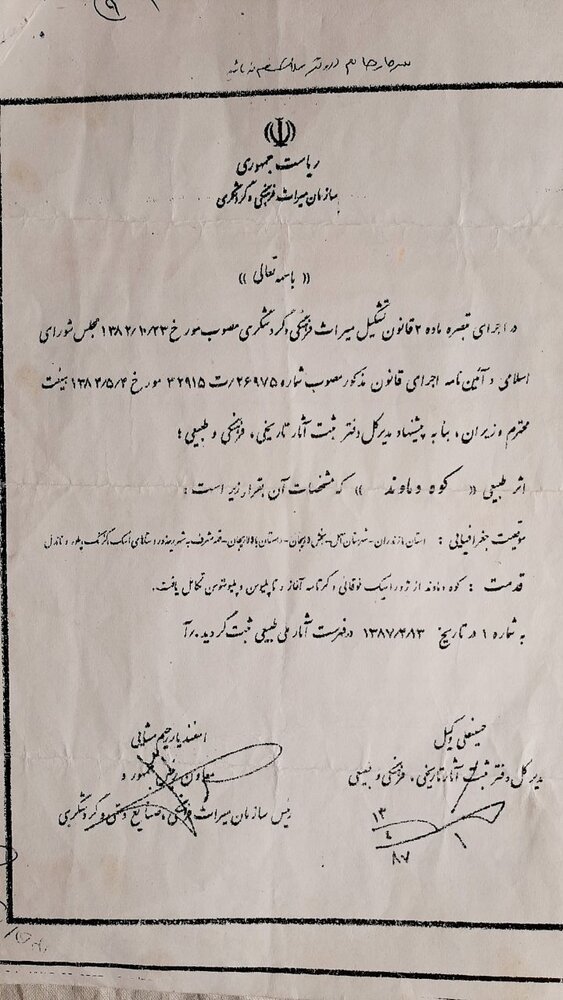 ریاست جمهوری
سازمان میراث فرهنگی و گردشگری
« باسمه تعالی »
در اجرای تبصره ماده ۲ قانون تشکیل میراث فرهنگی و گردشگری مصوب مورخ ۱۳۸۲/۱۰/۲۳ مجلس شورای
اسلامی و آئین نامه اجرای قانون مذکور مصوب شماره ۲۶۹۷۵/ت ۳۲۹۱۵ مورخ ۱۳۸۴/۵/۴ هیئت
محترم وزیران، بنا به پیشنهاد مدیرکل دفتر ثبت آثار تاریخی، فرهنگی و طبیعی؛
اثر طبیعی « کوه دماوند » که مشخصات آن بقرار زیر است:
موقعیت جغرافیایی : استان مازندران-شهرستان آمل-بخش لاریجان-دهستان بالا لاریجان-قله مشرف به شهر رینه و روستاهای اسک، گزنک، پلور و ناندل
قدمت : کوه دماوند از ژوراسیک فوقانی و کرتاسه آغاز و تا پلیوسن و پلیوستوسن تکامل یافت.
به شماره ۱ در تاریخ ۱۳۸۷/۴/۱۳ در فهرست آثار ملی طبیعی ثبت گردید.
حسینعلی وکیل
مدیرکل دفتر ثبت آثار تاریخی، فرهنگی و طبیعی
۱۳
۴
۸۷
اسفندیار رحیم مشایی
معاون رئیس جمهور و
رئیس سازمان میراث فرهنگی، صنایع دستی و گردشگری